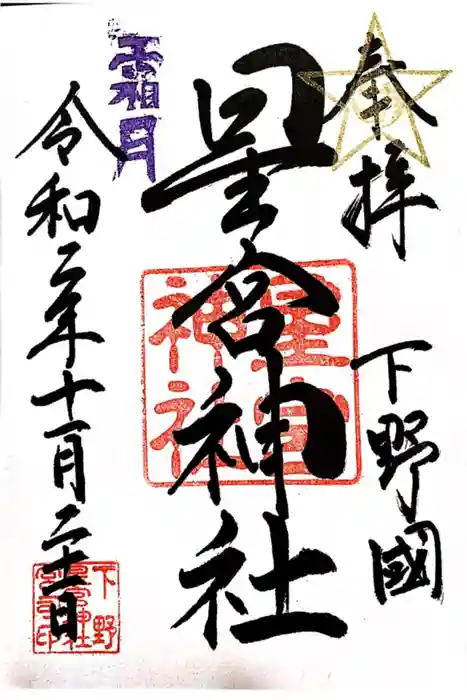 奉拝
下野國
星宮神社
星宮
神社
霜月
令和二年十一月二十一日
下野
星宮神社
宮司印